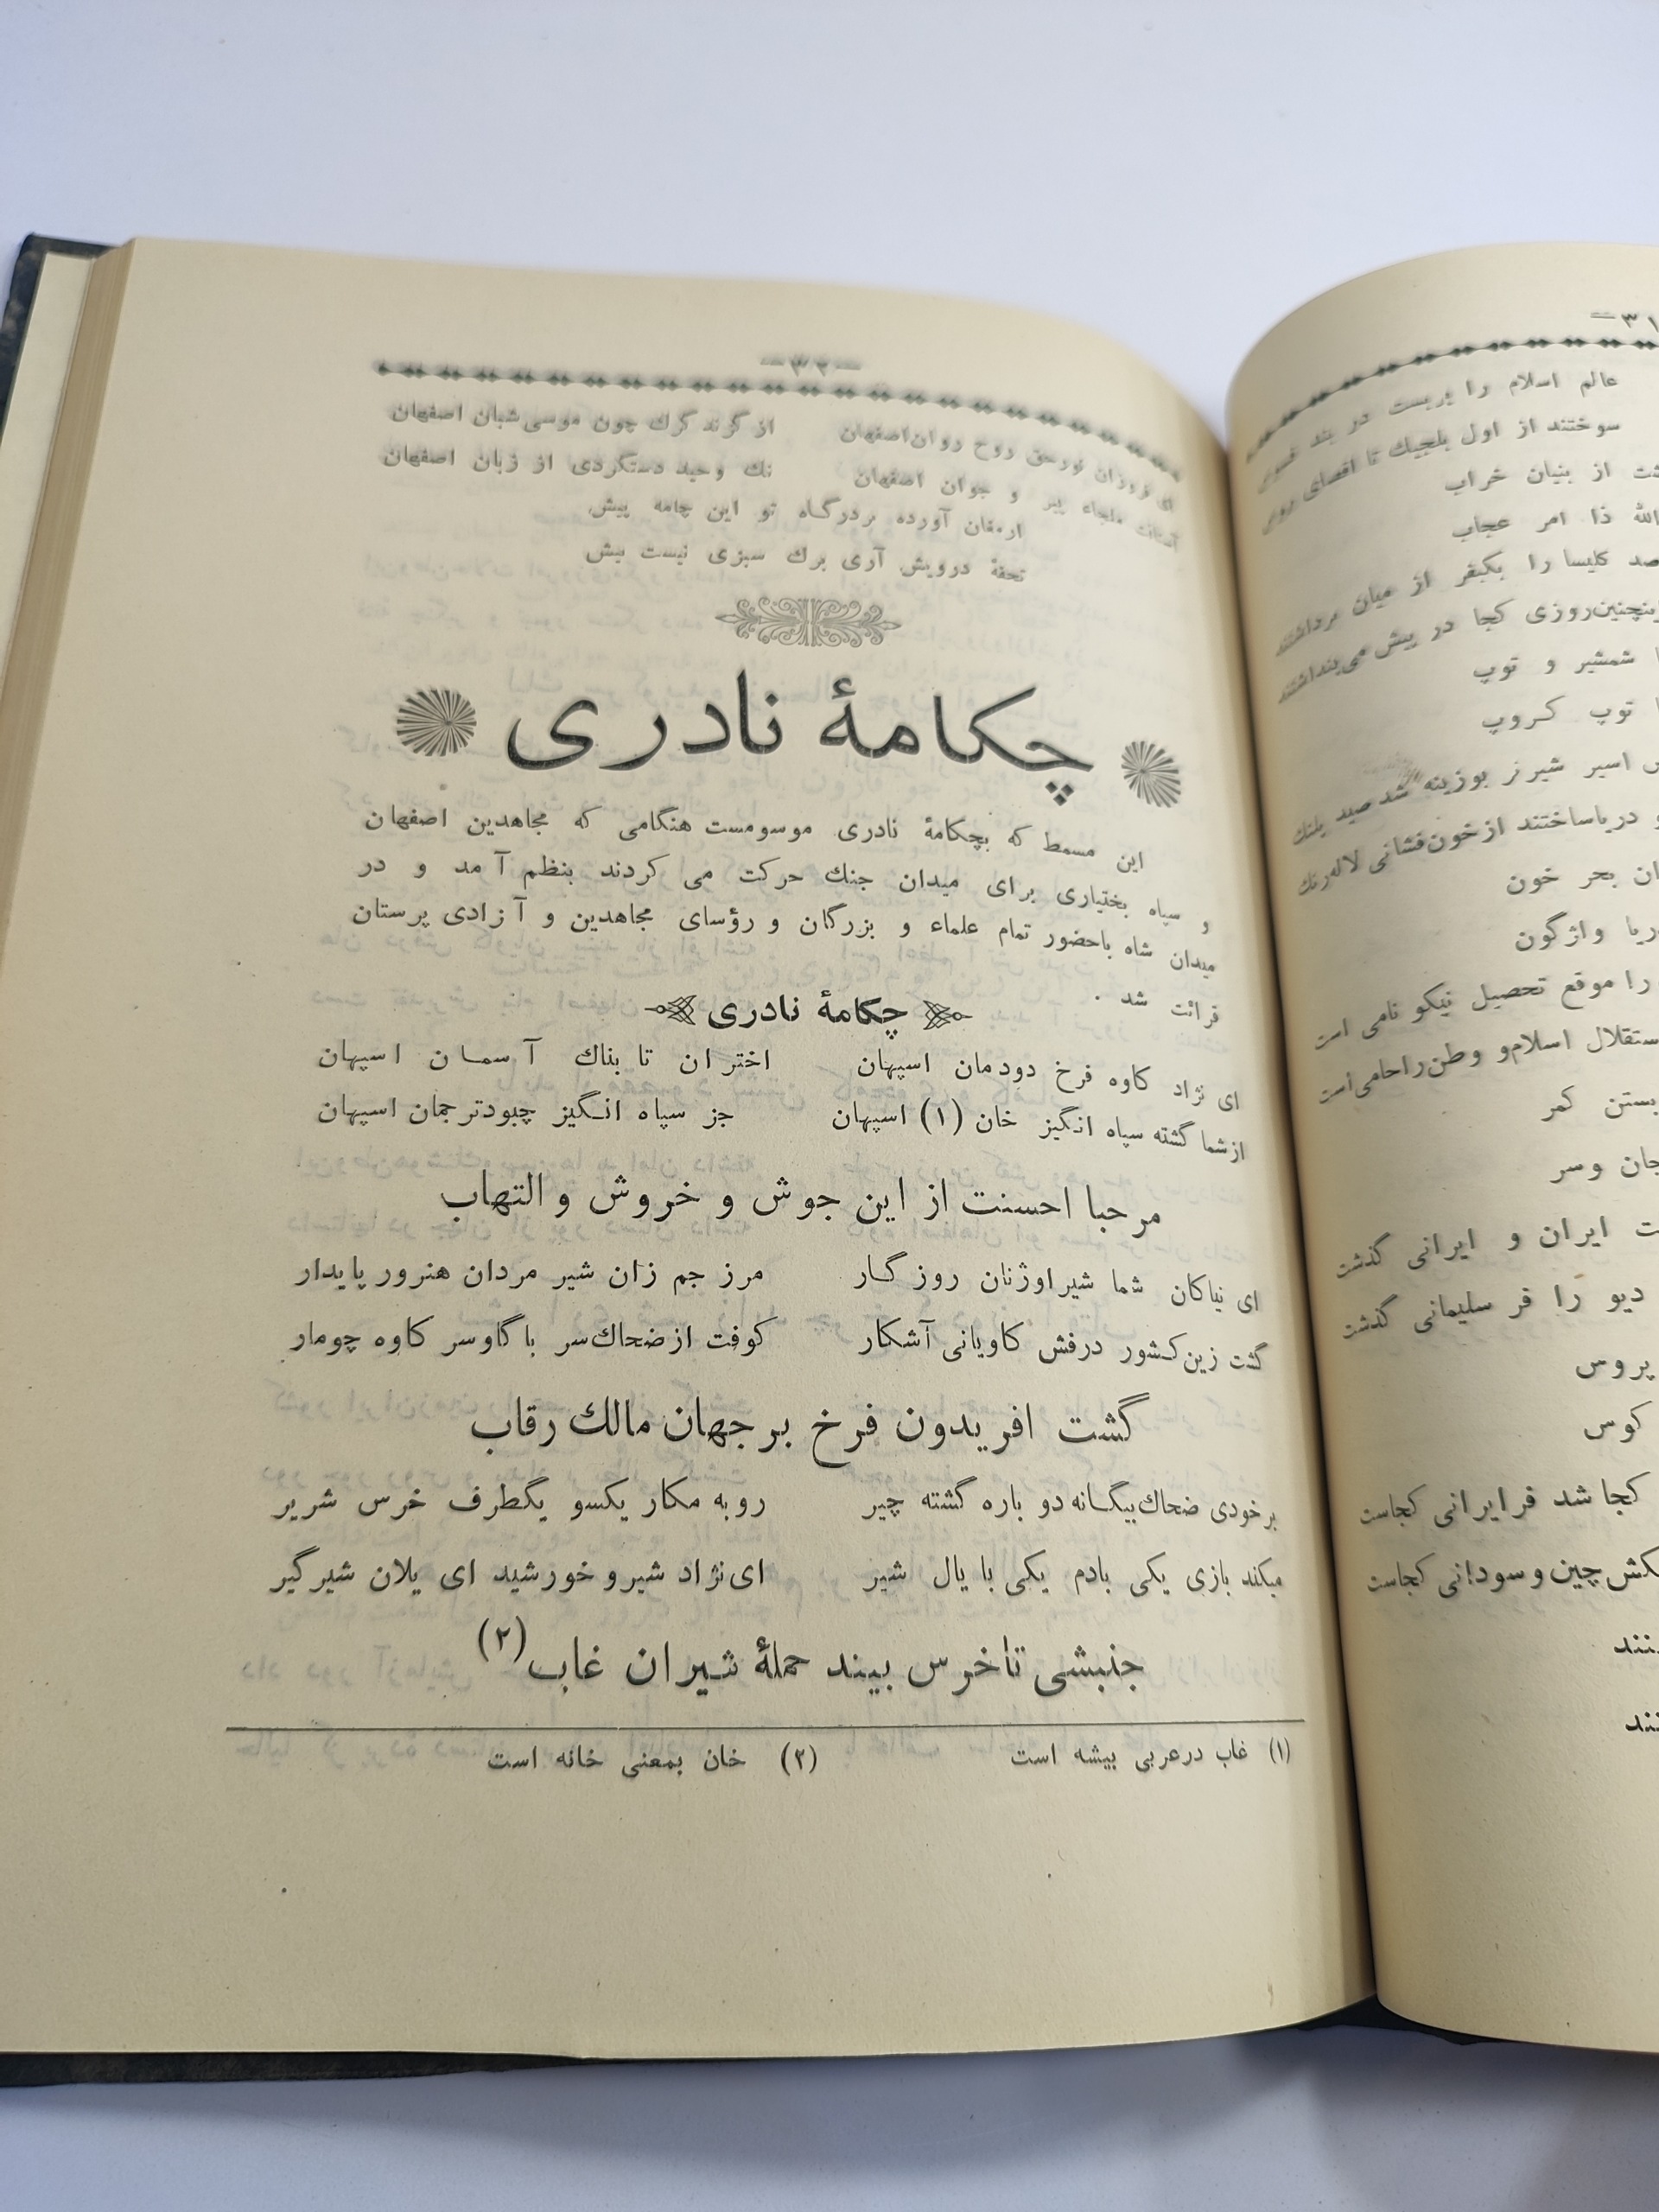 —۳۲—
ای فروزان نور حق روح روان اصفهان از گزند گرك چون موسی شبان اصفهان
آستانت ملجاء پیر و جوان اصفهان نك وحید دستگردی از زبان اصفهان
ارمغان آورده بردرگاه تو این چامه پیش
تحفهٔ درویش آری برك سبزی نیست بیش
چکامهٔ نادری
این مسمط که بچکامهٔ نادری موسومست هنگامی که مجاهدین اصفهان
و سپاه بختیاری برای میدان جنك حرکت می کردند بنظم آمد و در
میدان شاه باحضور تمام علماء و بزرگان و رؤسای مجاهدین و آزادی پرستان
قرائت شد .
چکامهٔ نادری
ای نژاد کاوه فرخ دودمان اسپهان اختران تابناك آسمان اسپهان
ازشما گشته سپاه انگیز خان (۱) اسپهان جز سپاه انگیز چبودترجمان اسپهان
مرحبا احسنت از این جوش و خروش و التهاب
ای نیاکان شما شیراوژنان روزگار مرز جم زان شیر مردان هنرور پایدار
گشت زین کشور درفش کاویانی آشکار کوفت از ضحاك سر با گاوسر کاوه چومار
گشت افریدون فرخ بر جهان مالك رقاب
برخودی ضحاك بیگانه دو باره گشته چیر روبه مکار یکسو یکطرف خرس شریر
میکند بازی یکی بادم یکی با یال شیر ای نژاد شیرو خورشید ای یلان شیرگیر
جنبشی تاخرس بیند حملهٔ شیران غاب (۲)
(۱) غاب درعربی بیشه است (۲) خان بمعنی خانه است
۳۱—
عالم اسلام را بربست در بند
سوختند از اول بلجیك تا اقصای روس
از بنیان خراب
ذا امر عجاب
صد کلیسا را بکیفر از میان برداشتند
روزی کجا در پیش می پنداشتند
شمشیر و توپ
توپ کروپ
اسیر شیر نر بوزینه شد صید پلنك
دریاساختند ازخون فشانی لاله رنك
بحر خون
واژگون
را موقع تحصیل نیکو نامی است
استقلال اسلام و وطن راحامی است
بستن کمر
جان وسر
ایران و ایرانی گذشت
دیو را فر سلیمانی گذشت
پروس
کوس
کجا شد فرایرانی کجاست
چین و سودانی کجاست